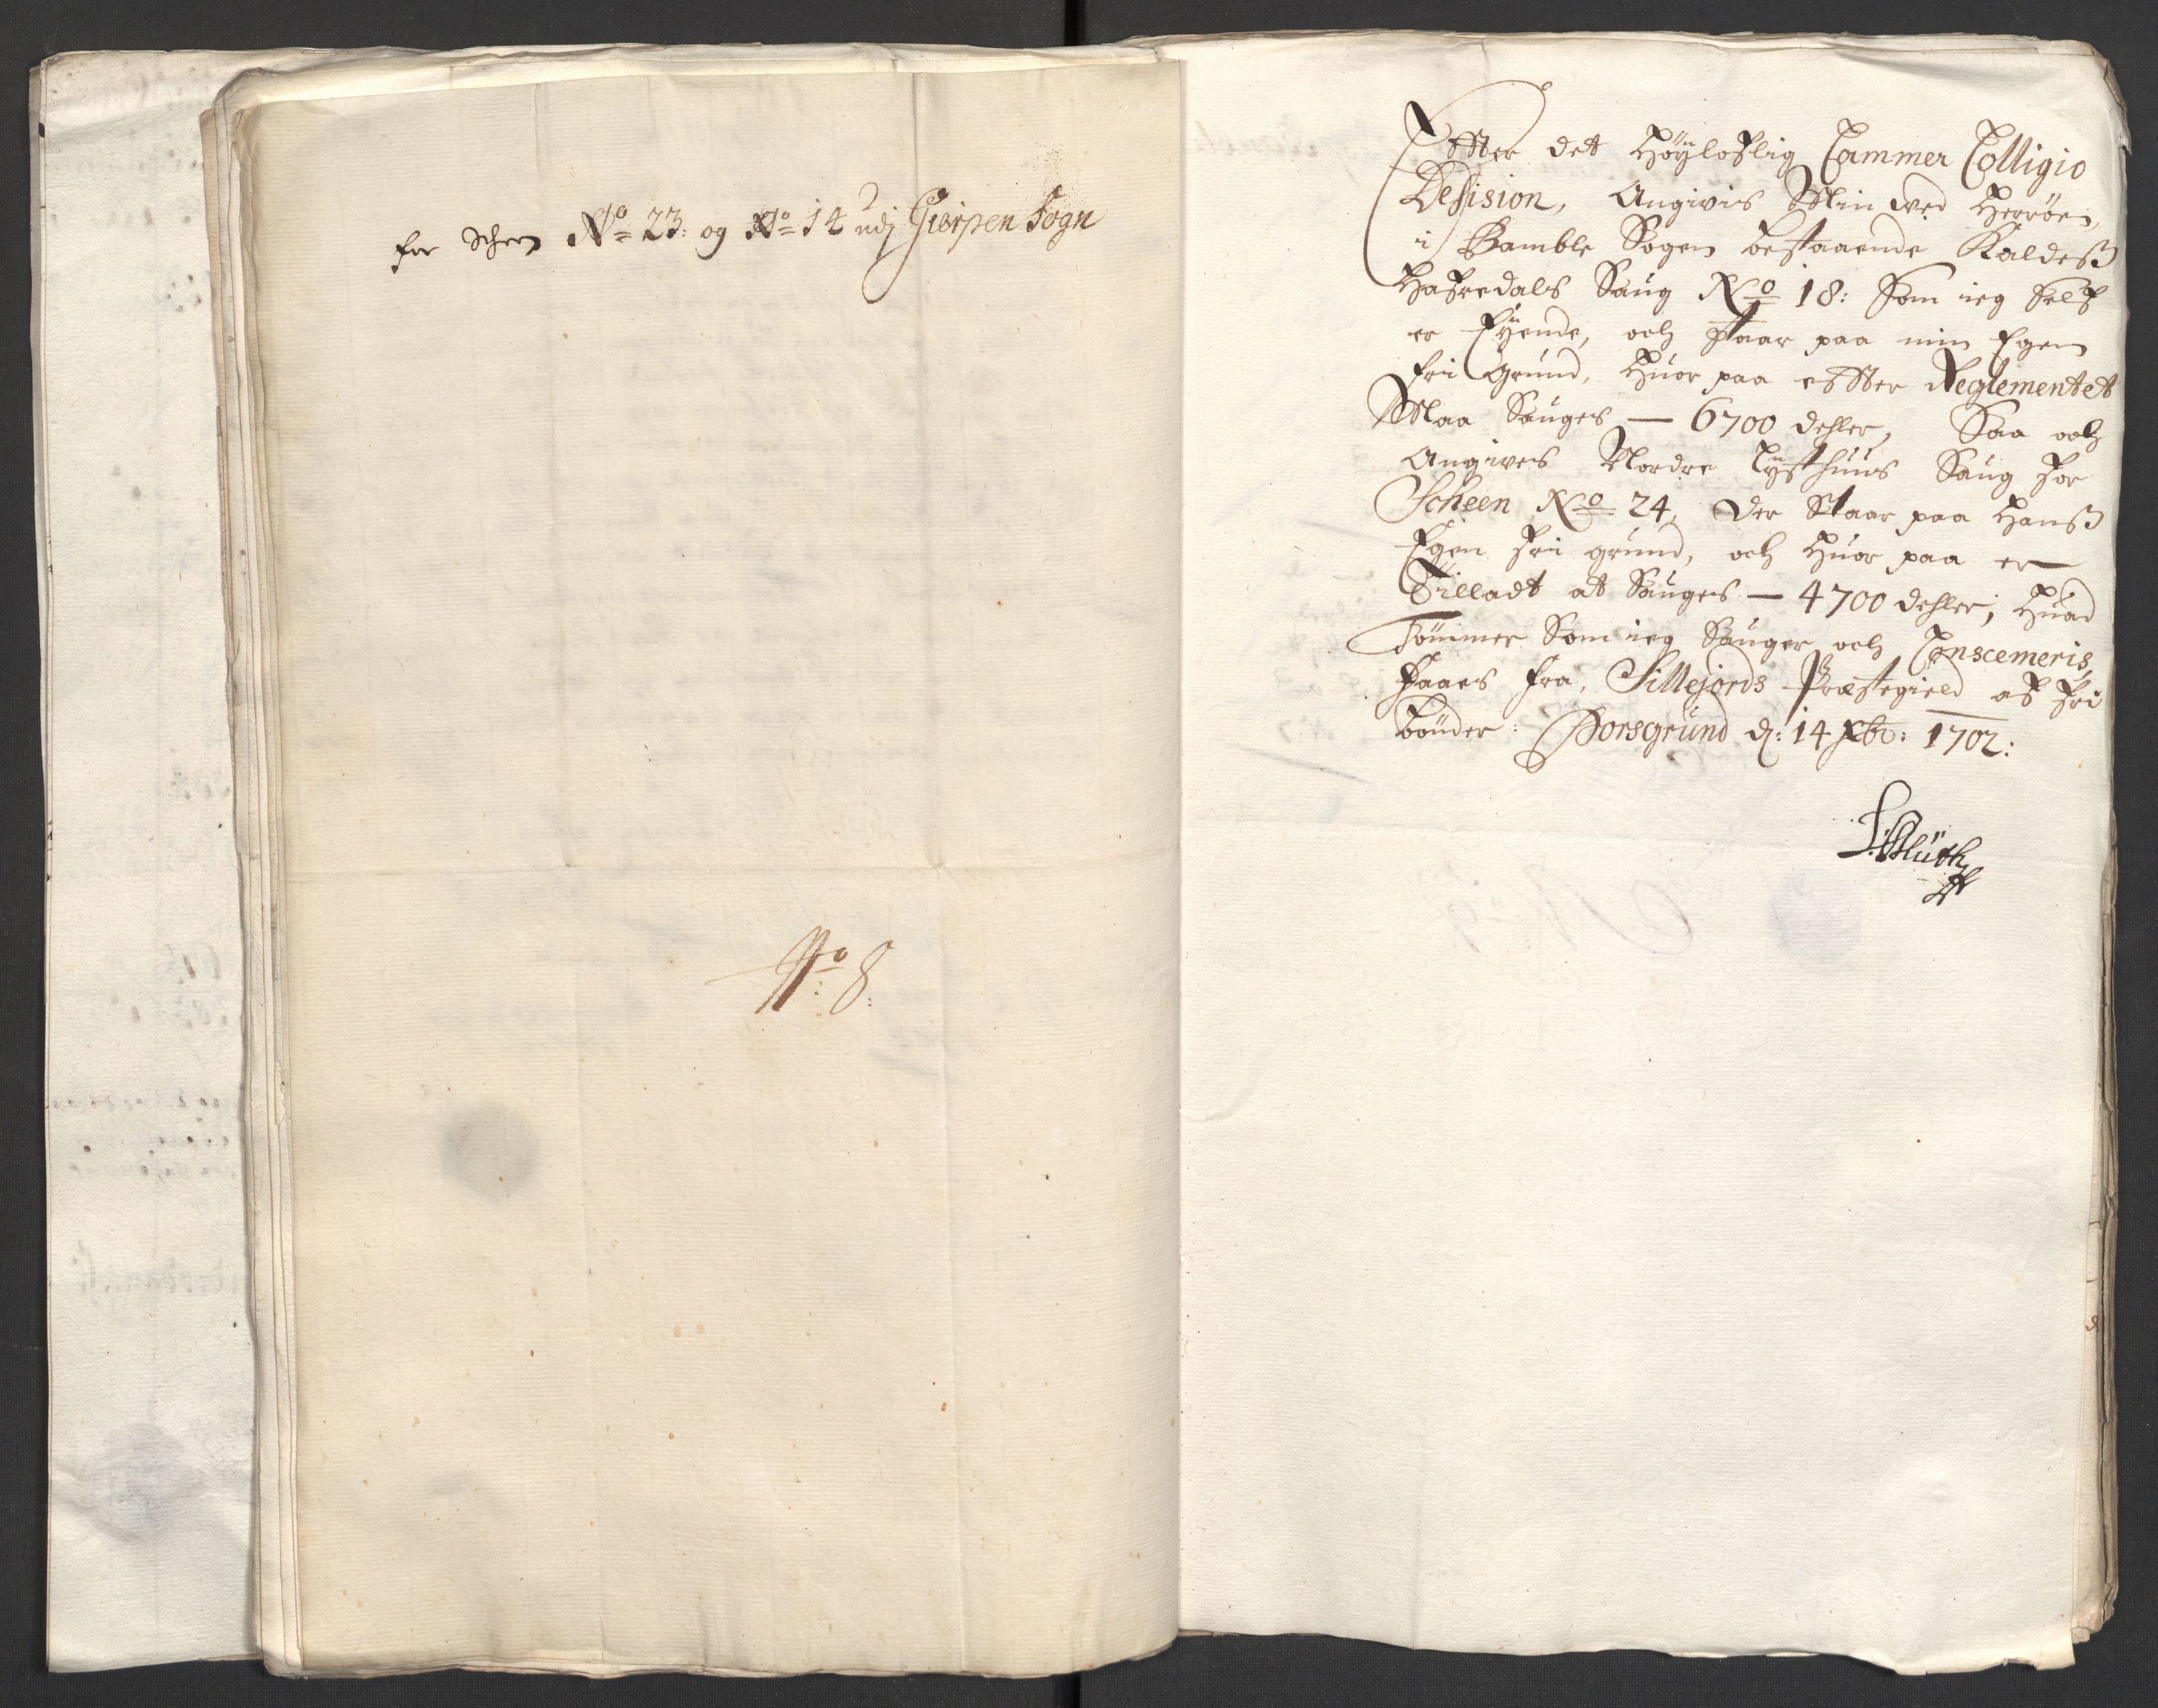 for Scheen No 23: og No 14 udj Gierpen Sogn
No: 8:
Effter det Høyloflig Cammer Colligio
Desision, Angivis Min ved Herrøen,
i Bamble Sogen bestaaende Kaldeß
Hafredals Saug No 18: Som ieg Self
er Eÿende, och staar paa min Egen
fri Grund, Huor paa effter Reglementet
Maa Sauges — 6700 dehler, Saa och
Angives Nordre Lysthuus Saug for
Scheen No 24, der Staar paa Hanß
Egen fri grund, och Huor paa er
Tilladt at Sauges — 4700 dehler, Huad
Tømmer Som ieg Sauger och Conscemeris,
faaes fra, Sillejords Præstegield af fri
bønder: Porsgrund d: 14 Xbr: 1702: